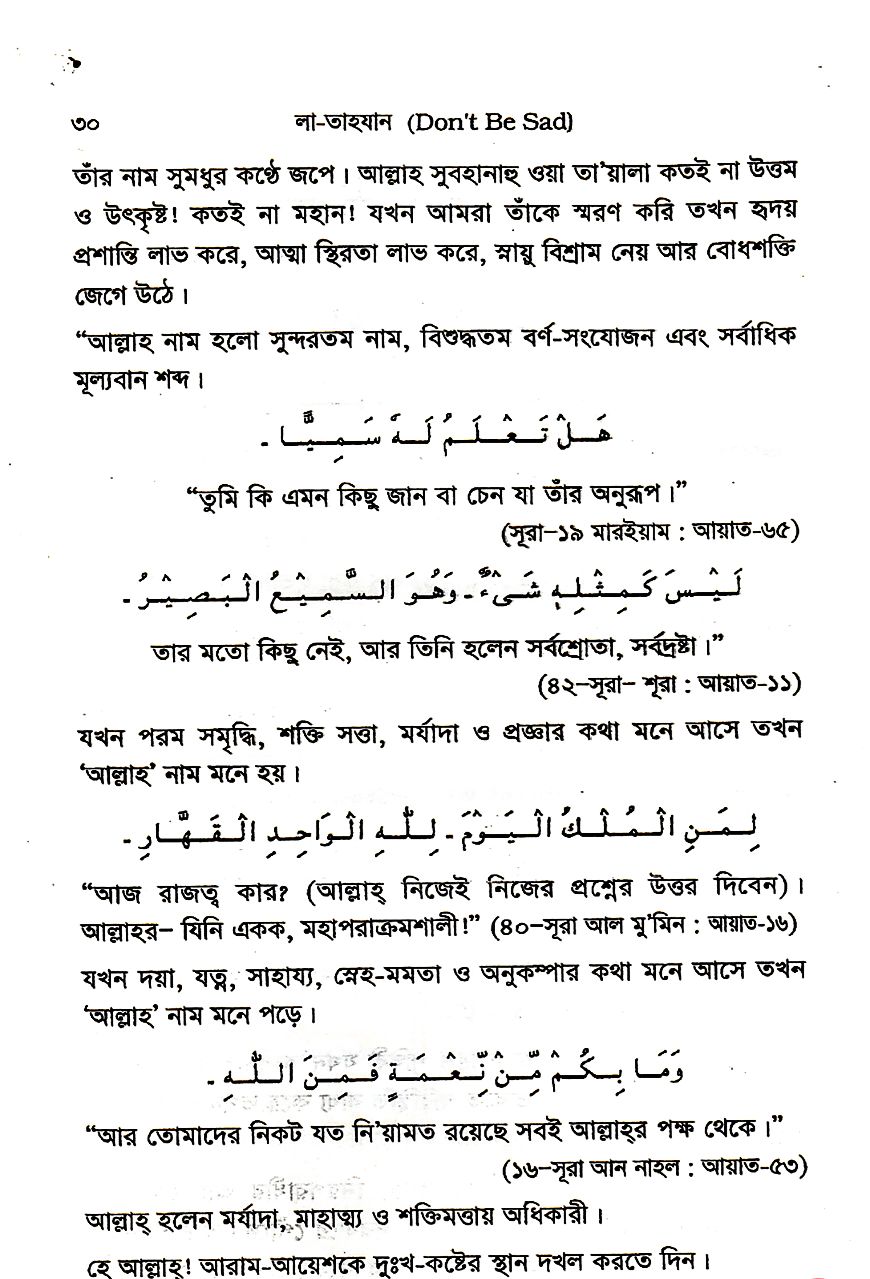 ৩০ লা-তাহযান (Don't Be Sad)
তাঁর নাম সুমধুর কণ্ঠে জপে। আল্লাহ সুবহানাহু ওয়া তা'য়ালা কতই না উত্তম
ও উৎকৃষ্ট! কতই না মহান! যখন আমরা তাঁকে স্মরণ করি তখন হৃদয়
প্রশান্তি লাভ করে, আত্মা স্থিরতা লাভ করে, স্নায়ু বিশ্রাম নেয় আর বোধশক্তি
জেগে উঠে।
“আল্লাহ নাম হলো সুন্দরতম নাম, বিশুদ্ধতম বর্ণ-সংযোজন এবং সর্বাধিক
মূল্যবান শব্দ।
هَلْ تَعْلَمُ لَهٗ سَمِيًّا ـ
“তুমি কি এমন কিছু জান বা চেন যা তাঁর অনুরূপ।”
(সূরা-১৯ মারইয়াম : আয়াত-৬৫)
لَيْسَ كَمِثْلِهٖ شَىْءٌ ـ وَهُوَ السَّمِيْعُ الْبَصِيْرُ ـ
তার মতো কিছু নেই, আর তিনি হলেন সর্বশ্রোতা, সর্বদ্রষ্টা।”
(৪২-সূরা- শূরা : আয়াত-১১)
যখন পরম সমৃদ্ধি, শক্তি সত্তা, মর্যাদা ও প্রজ্ঞার কথা মনে আসে তখন
‘আল্লাহ’ নাম মনে হয়।
لِمَنِ الْمُلْكُ الْيَوْمَ ـ لِلّٰهِ الْوَاحِدِ الْقَهَّارِ ـ
“আজ রাজত্ব কার? (আল্লাহ্ নিজেই নিজের প্রশ্নের উত্তর দিবেন)।
আল্লাহ্‌র- যিনি একক, মহাপরাক্রমশালী!” (৪০-সূরা আল মু'মিন : আয়াত-১৬)
যখন দয়া, যত্ন, সাহায্য, স্নেহ-মমতা ও অনুকম্পার কথা মনে আসে তখন
‘আল্লাহ’ নাম মনে পড়ে।
وَمَا بِكُمْ مِّنْ نِّعْمَةٍ فَمِنَ اللّٰهِ ـ
“আর তোমাদের নিকট যত নি'য়ামত রয়েছে সবই আল্লাহ্‌র পক্ষ থেকে।”
(১৬-সূরা আন নাহল : আয়াত-৫৩)
আল্লাহ্ হলেন মর্যাদা, মাহাত্ম্য ও শক্তিমত্তায় অধিকারী।
হে আল্লাহ্! আরাম-আয়েশকে দুঃখ-কষ্টের স্থান দখল করতে দিন।